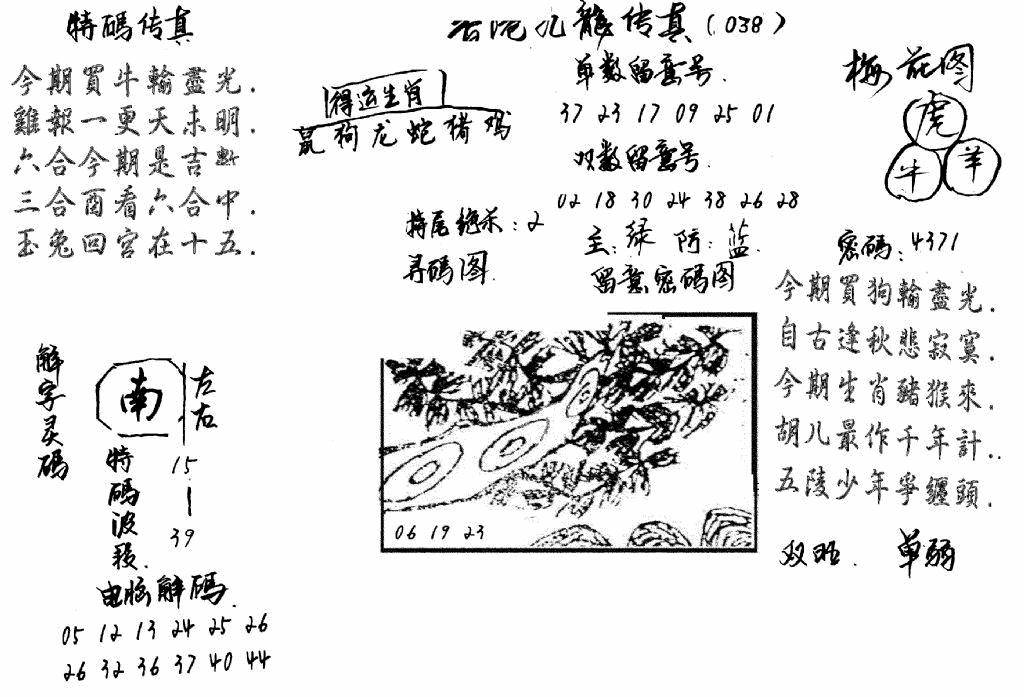 特碼传真
今期買牛輸盡光.
雞報一更天未明.
六合今期是吉數
三合酉看六合中.
玉兔回宮在十五.
九龍传真(038)
得运生肖
鼠狗龙蛇猪鸡
单数留意号.
37 23 17 09 25 01
双数留意号.
02 18 30 24 38 26 28
特尾绝杀:2
主:绿 防:蓝.
寻碼图.
留意密码图
06 19 23
梅花图
虎
牛 羊
密碼:4371
今期買狗輸盡光.
自古逢秋悲寂寞.
今期生肖豬猴來.
胡儿最作千年計..
五陵少年爭纏頭.
双旺. 单弱
解字灵碼
南
左右
特碼波段.
15—39
电脑解碼.
05 12 13 24 25 26
26 32 36 37 40 44